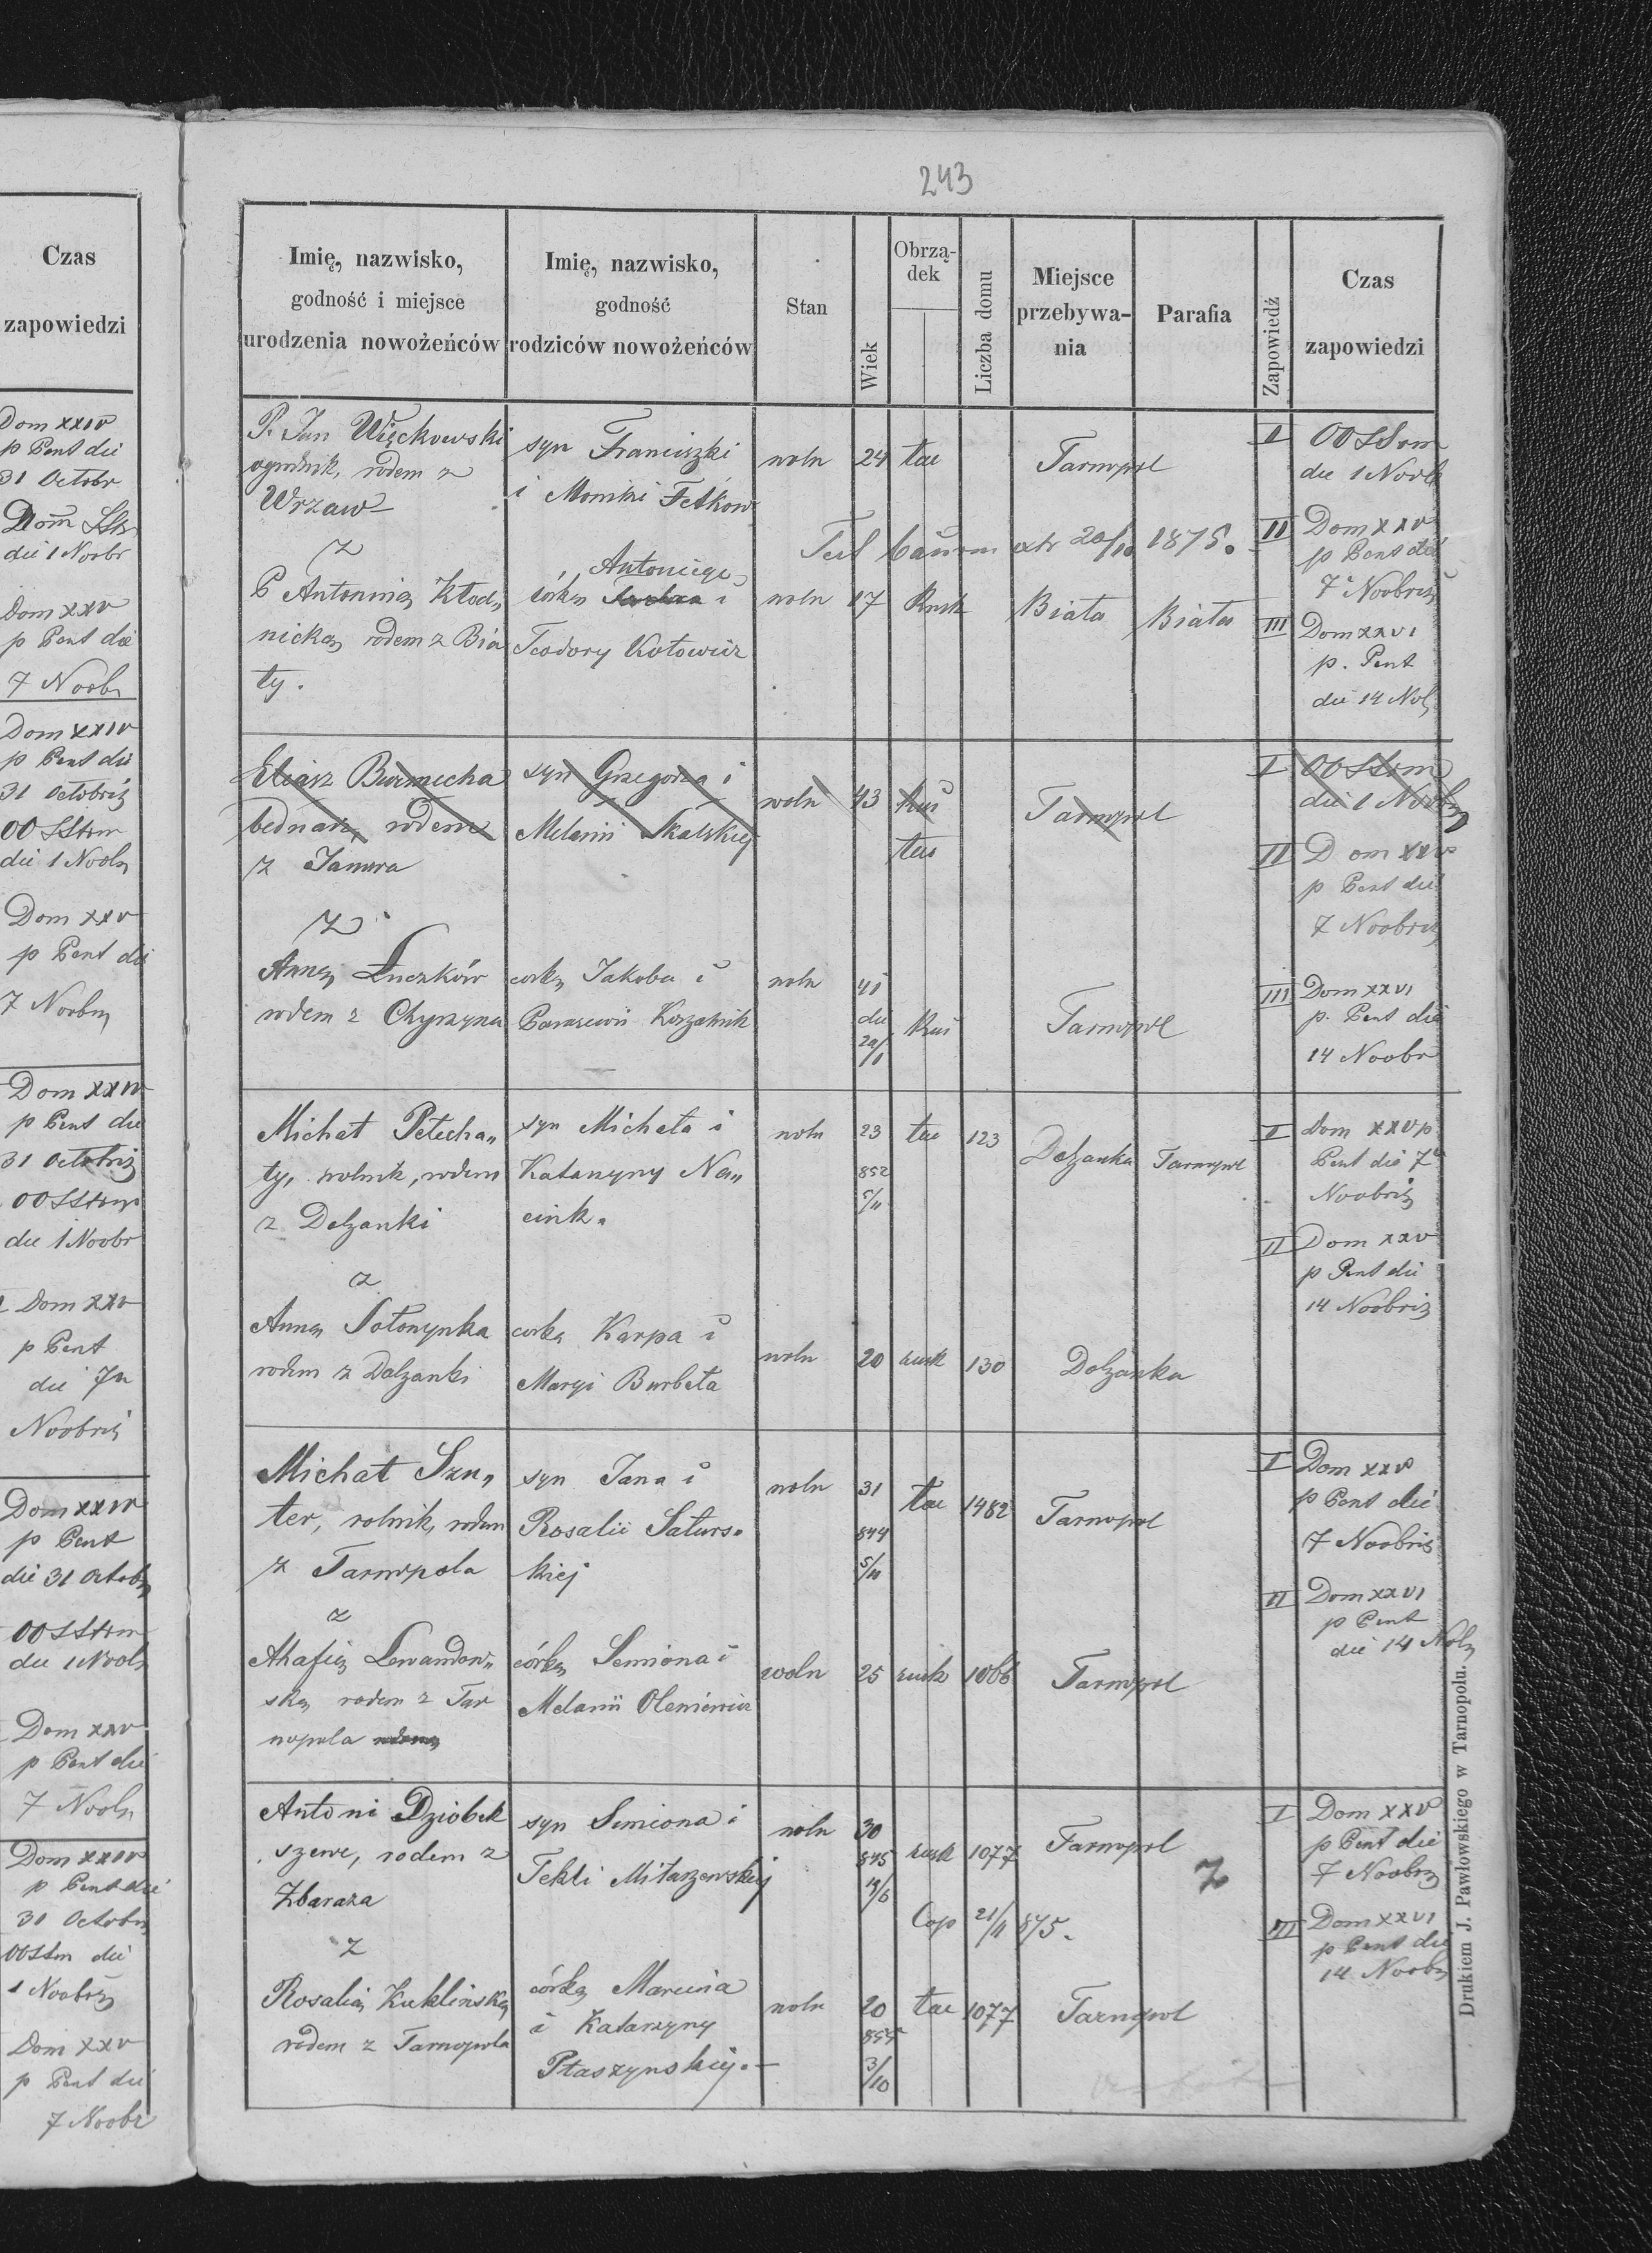 Czas
zapowiedzi
Dom XXIV
p Pent die
31 Octobr
die 1 Noobr
Dom XXV
p Pent die
7 Noobr
Dom XXIV
p Pent die
31 Octobris
OOSStrm
die 1 Noobr
Dom XXV
p Pent die
7 Noobr
Dom XXIV
p Pent die
31 Octobris
OOSStrm
die 1 Noobr
Dom XXV
p Pent
die 7a
Noobris
Dom XXIV
p Pent
die 31 Octobr
OOSStrm
die 1 Noobr
Dom XXV
p Pent die
7 Noobr
Dom XXIV
p Pent die
31 Octobr
OOSStrm die
1 Noobris
Dom XXV
p Pent die
7 Noobr
243
Imię, nazwisko,
godność i miejsce
urodzenia nowożeńców
Imię, nazwisko,
godność
rodziców nowożeńców
Stan
Wiek
Obrzą-
dek
Liczba domu
Miejsce
przebywa-
nia
Parafia
Zapowiedź
Czas
zapowiedzi
P. Jan Więckowski
ogrodnik, rodem z
Wrzaw
syn Franciszki
i Moniki Fetkow
woln
24
łac
Tarnopol
I
OOSStrm
die 1 Noob
Test 1875.
II
Dom XXV
p Pent die
7a Noobris
z
P Antonina Kłod„
nicka rodem z Bia
ły.
Antoniego
córka i
Teodory Kotowicz
woln
17
Rusk
Biała
Biała
III
Dom XXVI
p. Pent
die 14 Nob
Eliasz Burmecha
bednarz, rodem
z Janowa
syn Grzegorza i
Melanii Skalskiej
woln
43
Rus
Tarnopol
I
OOSStrm
die 1 Noobr
II
Dom XXV
p Pent die
7 Noobris
z
Anna Łuczków
rodem z Chyrzyna
corka Jakoba i
woln
41
Rus
Tarnopol
III
Dom XXVI
p. Pent die
14 Noobr
Michał Petecha„
ty, rolnik, rodem
z Dołzanki
syn Michała i
Katarzyny Na„
cink.
woln
23
852
5/11
łac
123
Dołzanka
Tarnopol
I
Dom XXV p
Pent die 7a
Noobris
II
Dom XXV
p Pent die
14 Noobris
z
Anna Sołonynka
rodem z Dołzanki
corka Karpa i
Maryi Burbeła
woln
20
rusk
130
Dołzanka
Michał Szu„
ter, rolnik, rodem
z Tarnopola
syn Jana i
Rosalii Saturs-
kiej
woln
31
844
5/10
łac
1482
Tarnopol
I
Dom XXV
p Pent die
7 Noobris
II
Dom XXVI
p Pent
die 14 Nobr
z
Ahafia Lewandow„
ska rodem z Tar
nopola
córka Semiona i
Melanii Oleniewicz
woln
25
rusk
1066
Tarnopol
Antoni Dziobek
szewc, rodem z
Zbaraża
syn Semiona i
Tekli Mitarzewskiej
woln
30
845
19/6
rusk
1077
Tarnopol
I
Dom XXV
p Pent die
7 Noobris
Cop 21/11 875.
III
Dom XXVI
p Pent die
14 Noobr
z
Rosalia Kuklińska
rodem z Tarnopola
córka Marcina
i Katarzyny
Płaszynskiej.
woln
20
855
3/10
łac
1077
Tarnopol
Drukiem J. Pawłowskiego w Tarnopolu.